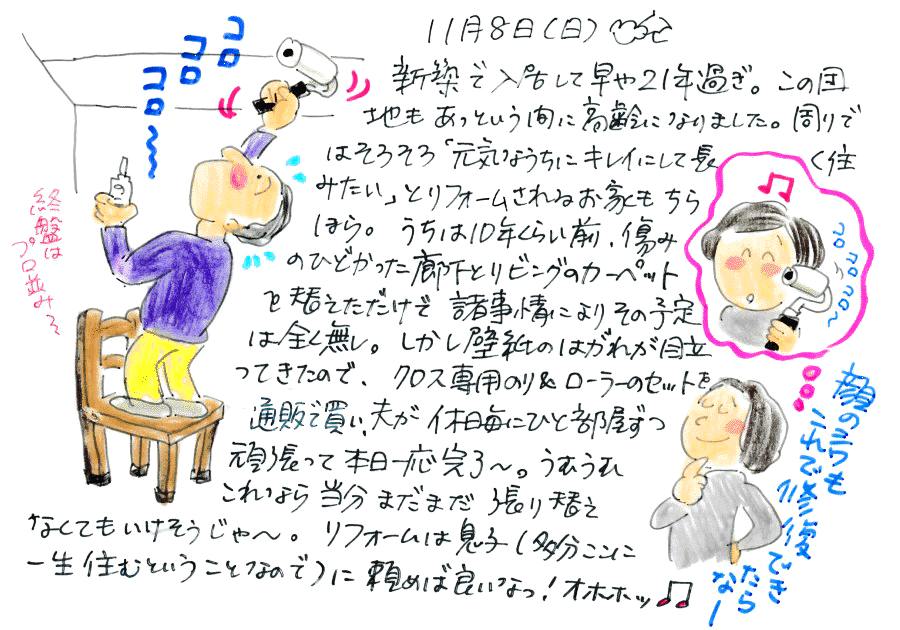 11月8日(日)
新築で入居して早や21年過ぎ。この団
地もあっという間に高齢になりました。周りで
はそろそろ「元気なうちにキレイにして長く住
みたい」とリフォームされるお家もちら
ほら。うちは10年くらい前、傷み
のひどかった廊下とリビングのカーペット
を替えただけで諸事情によりその予定
は全く無し。しかし壁紙のはがれが目立
ってきたので、クロス専用のり&ローラーのセットを
通販で買い、夫が休日毎にひと部屋ずつ
頑張って本日一応完了〜。うむうむ
これなら当分まだまだ張り替え
なくてもいけそうじゃ〜。リフォームは息子(多分ここに
一生住むということなので)に頼めば良いなっ!オホホッ♫
コロ
コロ
コロ〜
終盤は
プロ並み〜
♫
コロコロコロ〜
顔のシワも
これで修復でき
たら
なー